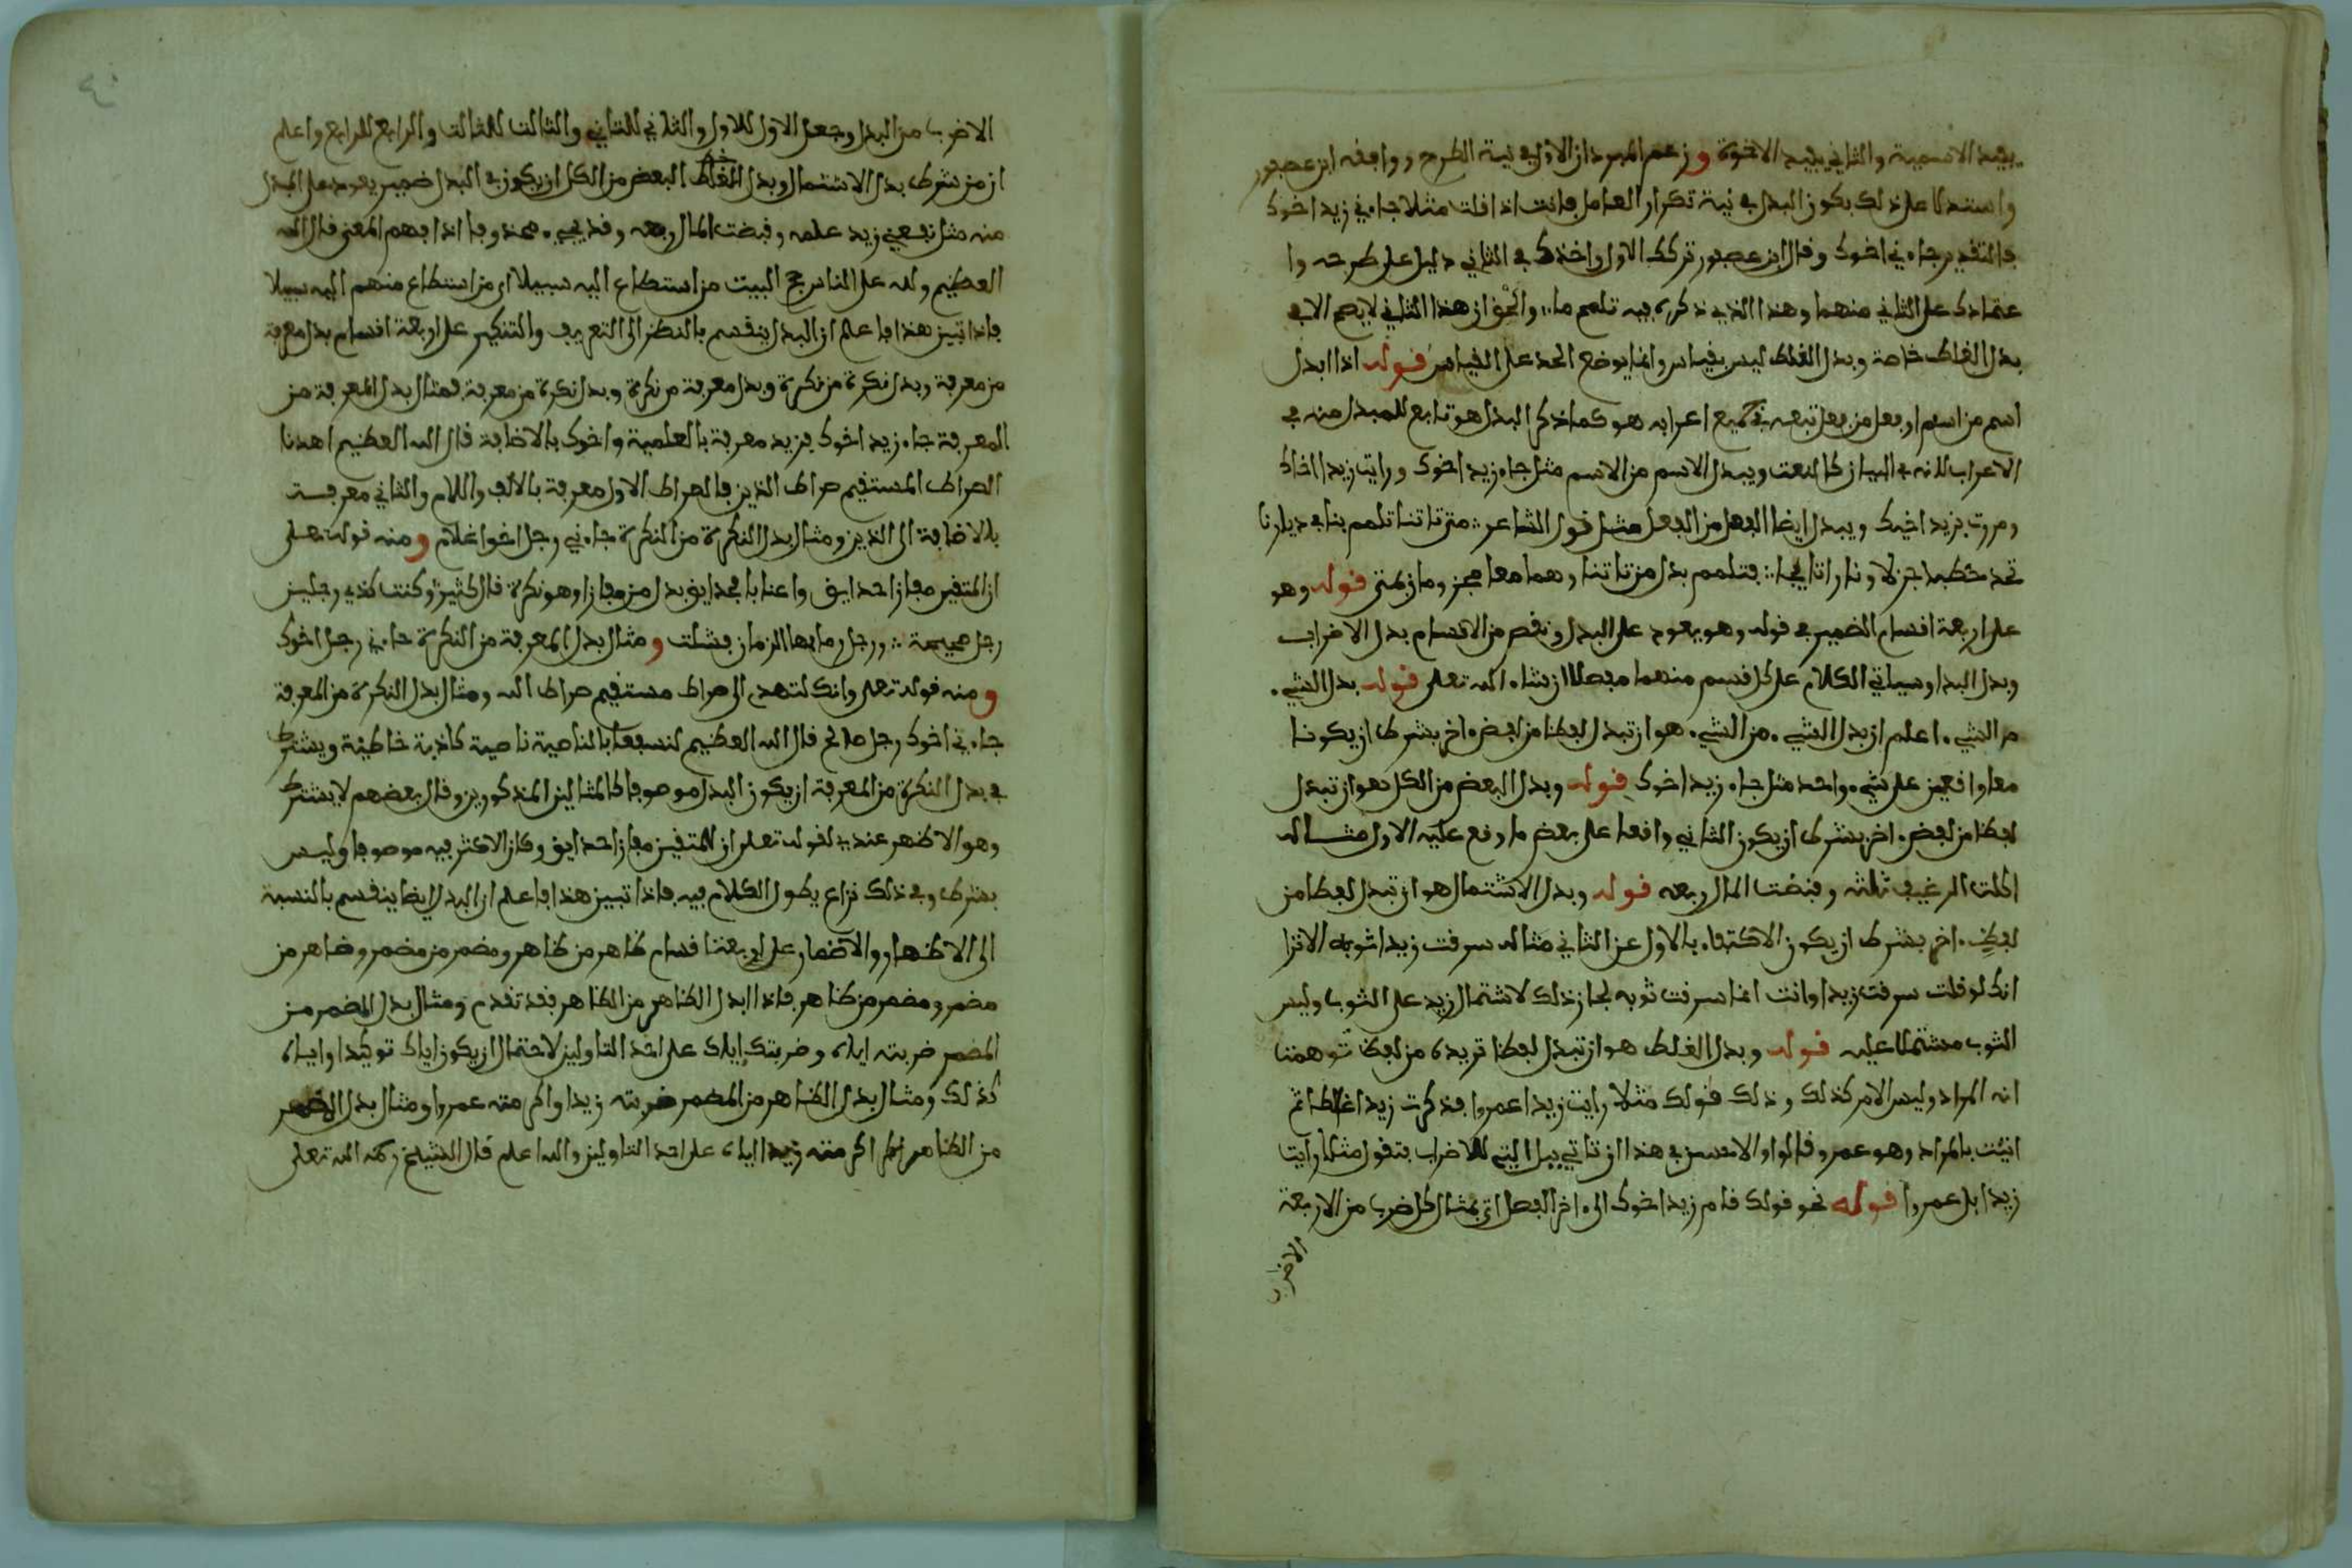 يفيد الاسمية والثاني يفيد الاخوة وزعم المبرد ان الاول في نية الطرح ووافقه ابن عصفور
واستدلا على ذلك بكون البدل في نية تكرار العامل فانت اذا قلت مثلا جاءني زيد اخوك
فالتقدير جاءني اخوك وقال ابن عصفور تركك الاول واخذك في الثاني دليل على طرحه وا
عتمادك على الثاني منهما وهذا الذي ذكره فيه تلعم ما والحق ان هذا الثاني لا يصح الا في
بدل الغلط خاصة وبدل الغلط ليس بقياس وانما يوضع الحد على القياس قوله اذا ابدل
اسم من اسم او فعل من فعل تبعه في جميع اعرابه هو كما ذكر البدل هو تابع للمبدل منه في
الاعراب لانه في البيان كالنعت ويبدل الاسم من الاسم مثل جاء زيد اخوك ورايت زيدا اخاك
ومررت بزيد اخيك ويبدل ايضا الفعل من الفعل مثل قول الشاعر متى تاتنا تلمم بنا في ديارنا
تجد حطبا جزلا ونارا تاججا فتلمم بدل من تاتنا وهما معا مجزومان بمتى قوله وهو
على اربعة اقسام الضمير في قوله وهو يعود على البدل ونقص من الاقسام بدل الاضراب
وبدل البدا وسياتي الكلام على كل قسم منهما مفصلا ان شاء الله تعلى قوله بدل الشيء
من الشيء اعلم ان بدل الشيء من الشيء هو ان تبدل لفظا من لفظ ءاخر بشرط ان يكونا
معا واقعين على شيء واحد مثل جاء زيد اخوك قوله وبدل البعض من الكل هو ان تبدل
لفظا من لفظ ءاخر بشرط ان يكون الثاني واقعا على بعض ما وقع عليه الاول مثاله
اكلت الرغيف ثلثه وقبضت المال ربعه قوله وبدل الاشتمال هو ان تبدل لفظا من
لفظ ءاخر بشرط ان يكون الاكتفاء بالاول عن الثاني مثاله سرقت زيدا ثوبه الا ترا
انك لو قلت سرقت زيدا وانت انما سرقت ثوبه لجاز ذلك لاشتمال زيد على الثوب وليس
الثوب مشتملا عليه قوله وبدل الغلط هو ان تبدل لفظا تريده من لفظ توهمنا
انه المراد وليس الامر كذلك وذلك قولك مثلا رايت زيدا عمروا فذكرت زيدا غلطا ثم
اتيت بالمراد وهو عمرو قالوا والاحسن في هذا ان تاتي ببل التي للاضراب فتقول مثلا رايت
زيدا بل عمروا قوله نحو قولك قام زيد اخوك الى ءاخر الفصل اتى بمثال كل ضرب من الاربعة
الاضرب
الاضرب من البدل وجعل الاول للاول والثاني للثاني والثالث للثالث والرابع للرابع واعلم
ان من شرط بدل الاشتمال وبدل البعض من الكل ان يكون في البدل ضمير يعود على المبدل
منه مثل نفعني زيد علمه وقبضت المال ربعه وقد يجيء محذوفا اذا فهم المعنى قال الله
العظيم ولله على الناس حج البيت من استطاع اليه سبيلا اي من استطاع منهم اليه سبيلا
فاذا تبين هذا فاعلم ان البدل ينقسم بالنظر الى التعريف والتنكير على اربعة اقسام بدل معرفة
من معرفة وبدل نكرة من نكرة وبدل معرفة من نكرة وبدل نكرة من معرفة فمثال بدل المعرفة من
المعرفة جاء زيد اخوك فزيد معرفة بالعلمية واخوك بالاضافة قال الله العظيم اهدنا
الصراط المستقيم صراط الذين فالصراط الاول معرفة بالالف واللام والثاني معرفة
بالاضافة الى الذين ومثال بدل النكرة من النكرة جاءني رجل اخوا غلام ومنه قوله تعلى
ان للمتقين مفازا حدايق واعنابا فحدايق بدل من مفازا وهو نكرة قال كثير وكنت كذي رجلين
رجل صحيحة ورجل رما فيها الزمان فشلت ومثال بدل المعرفة من النكرة جاءني رجل اخوك
ومنه قوله تعلى وانك لتهدي الى صراط مستقيم صراط الله ومثال بدل النكرة من المعرفة
جاءني اخوك رجل صالح قال الله العظيم لنسفعا بالناصية ناصية كاذبة خاطئة ويشترط
في بدل النكرة من المعرفة ان يكون البدل موصوفا كالمثالين المذكورين وقال بعضهم لا يشترط
وهو الاظهر عندي لقوله تعلى ان للمتقين مفازا حدايق وكان الاكثر فيه موصوفا وليس
بشرط وفي ذلك نزاع يطول الكلام فيه فاذا تبين هذا فاعلم ان البدل ايضا ينقسم بالنسبة
الى الاظهار والاضمار على اربعة اقسام ظاهر من ظاهر ومضمر من مضمر وظاهر من
مضمر ومضمر من ظاهر فاذا ابدل الظاهر من الظاهر فقد تقدم ومثال بدل المضمر من
المضمر ضربته اياه وضربتك اياك على احد التاولين لاحتمال ان يكون اياك توكيدا واياه
كذلك ومثال بدل الظاهر من المضمر ضربته زيدا واكرمته عمروا ومثال بدل المضمر
من الظاهر اكرمته زيدا اياه على احد التاولين والله اعلم قال الشيخ رحمه الله تعلى